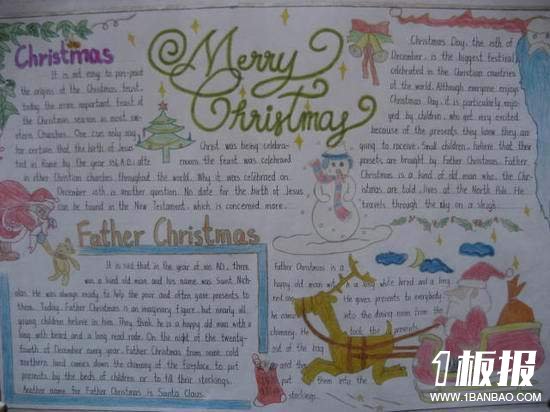 Christmas
It is not easy to pin-point
the origins of the Christmas feast,
today the more important feast of
the Christmas season in most wes-
tern Churches. One can only say
for certain that the birth of Jesus
in Rome by the year
in other Christian churches throughout the world. Why it was celebrated on
December is another question. No date for the birth of Jesus
can be found in the New Testament, which is concerned more
Christ was being celebra-
the feast was celebrated
Merry
Christmas
Christmas Day, the of
December, is the biggest festival
celebrated in the Christian countries
of the world. Although everyone enjoys
Christmas Day, it is particularly enjo-
yed by children, who get very excited
because of the presents they know they are
going to receive. Small children believe that their
presents are brought by Father Christmas. Father
Christmas is a kind of old man who, the Chr-
istmas are told, lives at the North Pole. He
travels through the sky on a sleigh
Father Christmas
It is said that in the year of AD, there
was a kind old man and his name was Saint Nich-
olas. He was always ready to help the poor and often gave presents to
them. Today, Father Christmas is an imaginary figure, but nearly all
young children believe in him. They think he is a happy old man with a
long with beard and a long read robe. On the night of the twenty-
fourth of December every year, Father Christmas from some cold
northern land comes down the chimney of the fireplace to put
presents by the beds of children or to fill their stockings.
Another name for Father Christmas is Santa Claus.
Father Christmas is a
happy old man with a long white beard and a long
He gives presents to everybody
into the dining room from the
chimney. He took the presents
out of the bag
and the
and put them into the
stockings.
1板报
WWW.1BANBAO.COM